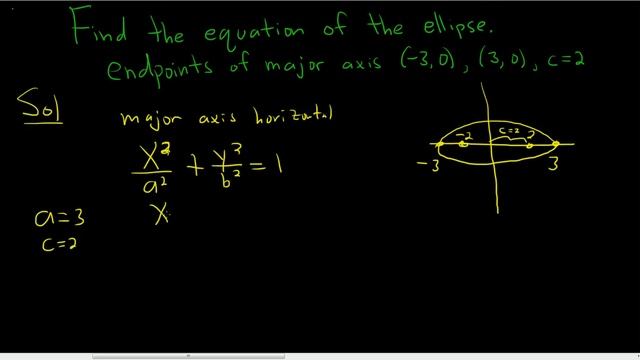 Find the equation of the ellipse.
endpoints of major axis (-3,0), (3,0), c=2
Sol
major axis horizontal
x²/a² + y²/b² = 1
a=3
c=2
x
c=2
-2
2
-3
3